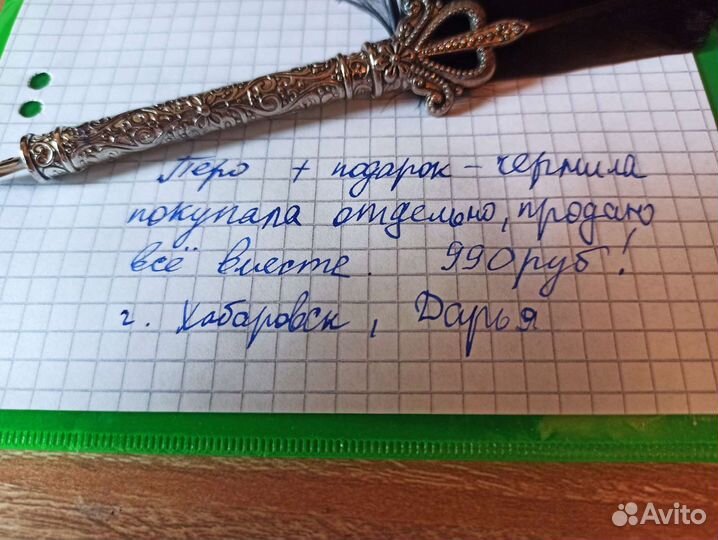 Перо + подарок - чернила
покупала отдельно, продаю
всё вместе. 990 руб!
г. Хабаровск, Дарья
Avito